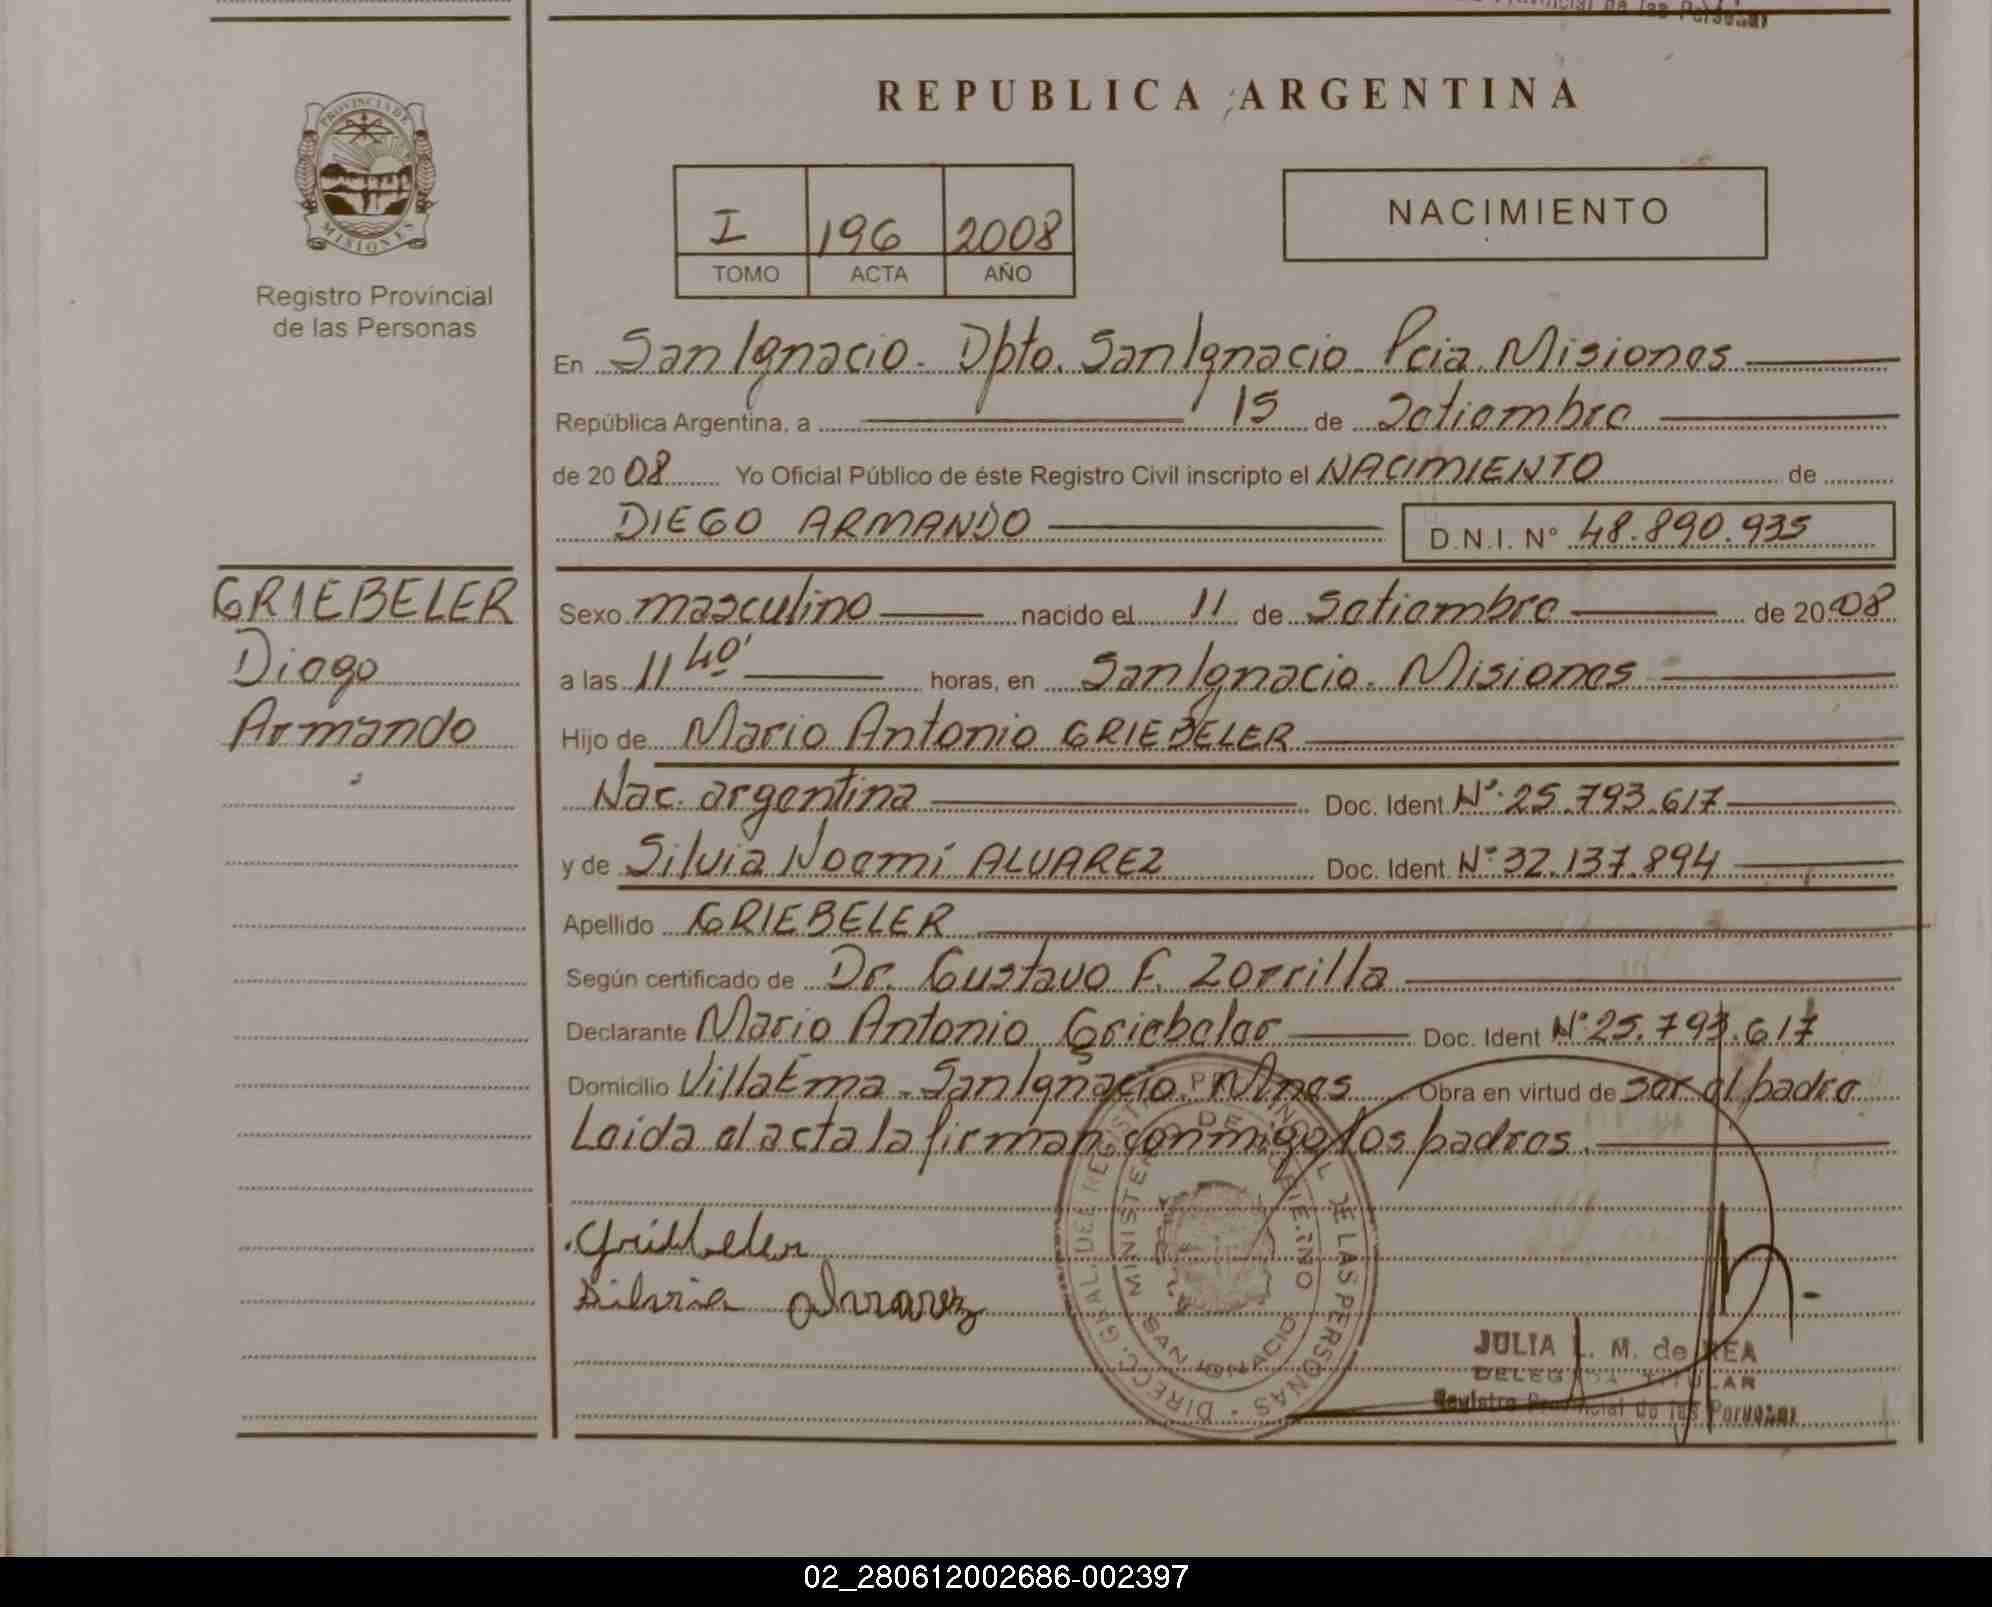 REPUBLICA ARGENTINA
PROVINCIA DE
MISIONES
Registro Provincial
de las Personas
I 196 2008
TOMO ACTA AÑO
NACIMIENTO
En San Ignacio. Dpto. San Ignacio Pcia. Misiones
República Argentina, a 15 de Setiembre
de 20 08 Yo Oficial Público de éste Registro Civil inscripto el NACIMIENTO de
DIEGO ARMANDO D.N.I. N° 48.890.935
GRIEBELER
Diego
Armando
Sexo masculino nacido el 11 de Setiembre de 20 08
a las 11 40' horas, en San Ignacio. Misiones
Hijo de Mario Antonio GRIEBELER
Nac. argentina Doc. Ident. N°. 25.793.617
y de Silvia Noemí ALVAREZ Doc. Ident. N° 32.137.894
Apellido GRIEBELER
Según certificado de Dr. Gustavo F. Zorrilla
Declarante Mario Antonio Griebeler Doc. Ident N° 25.793.617
Domicilio Villa Ema - San Ignacio. Mnes Obra en virtud de ser el padre
Leida el acta la firman conmigo los padres.
Griebeler
Silvia Alvarez
DIRECC. GRAL. DEL REGISTRO PROVINCIAL DE LAS PERSONAS
MINISTERIO DE GOBIERNO
SAN IGNACIO
JULIA L. M. de REA
DELEGADA TITULAR
Registro Provincial de las Personas
02_280612002686-002397